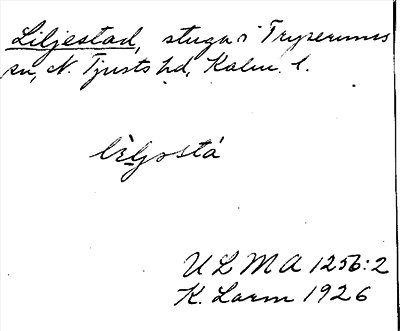 Liljestad, stuga i Tryserums
sn, N. Tjusts hd, Kalm. l.
lìljostá
ULMA 1256:2
K. Larm 1926